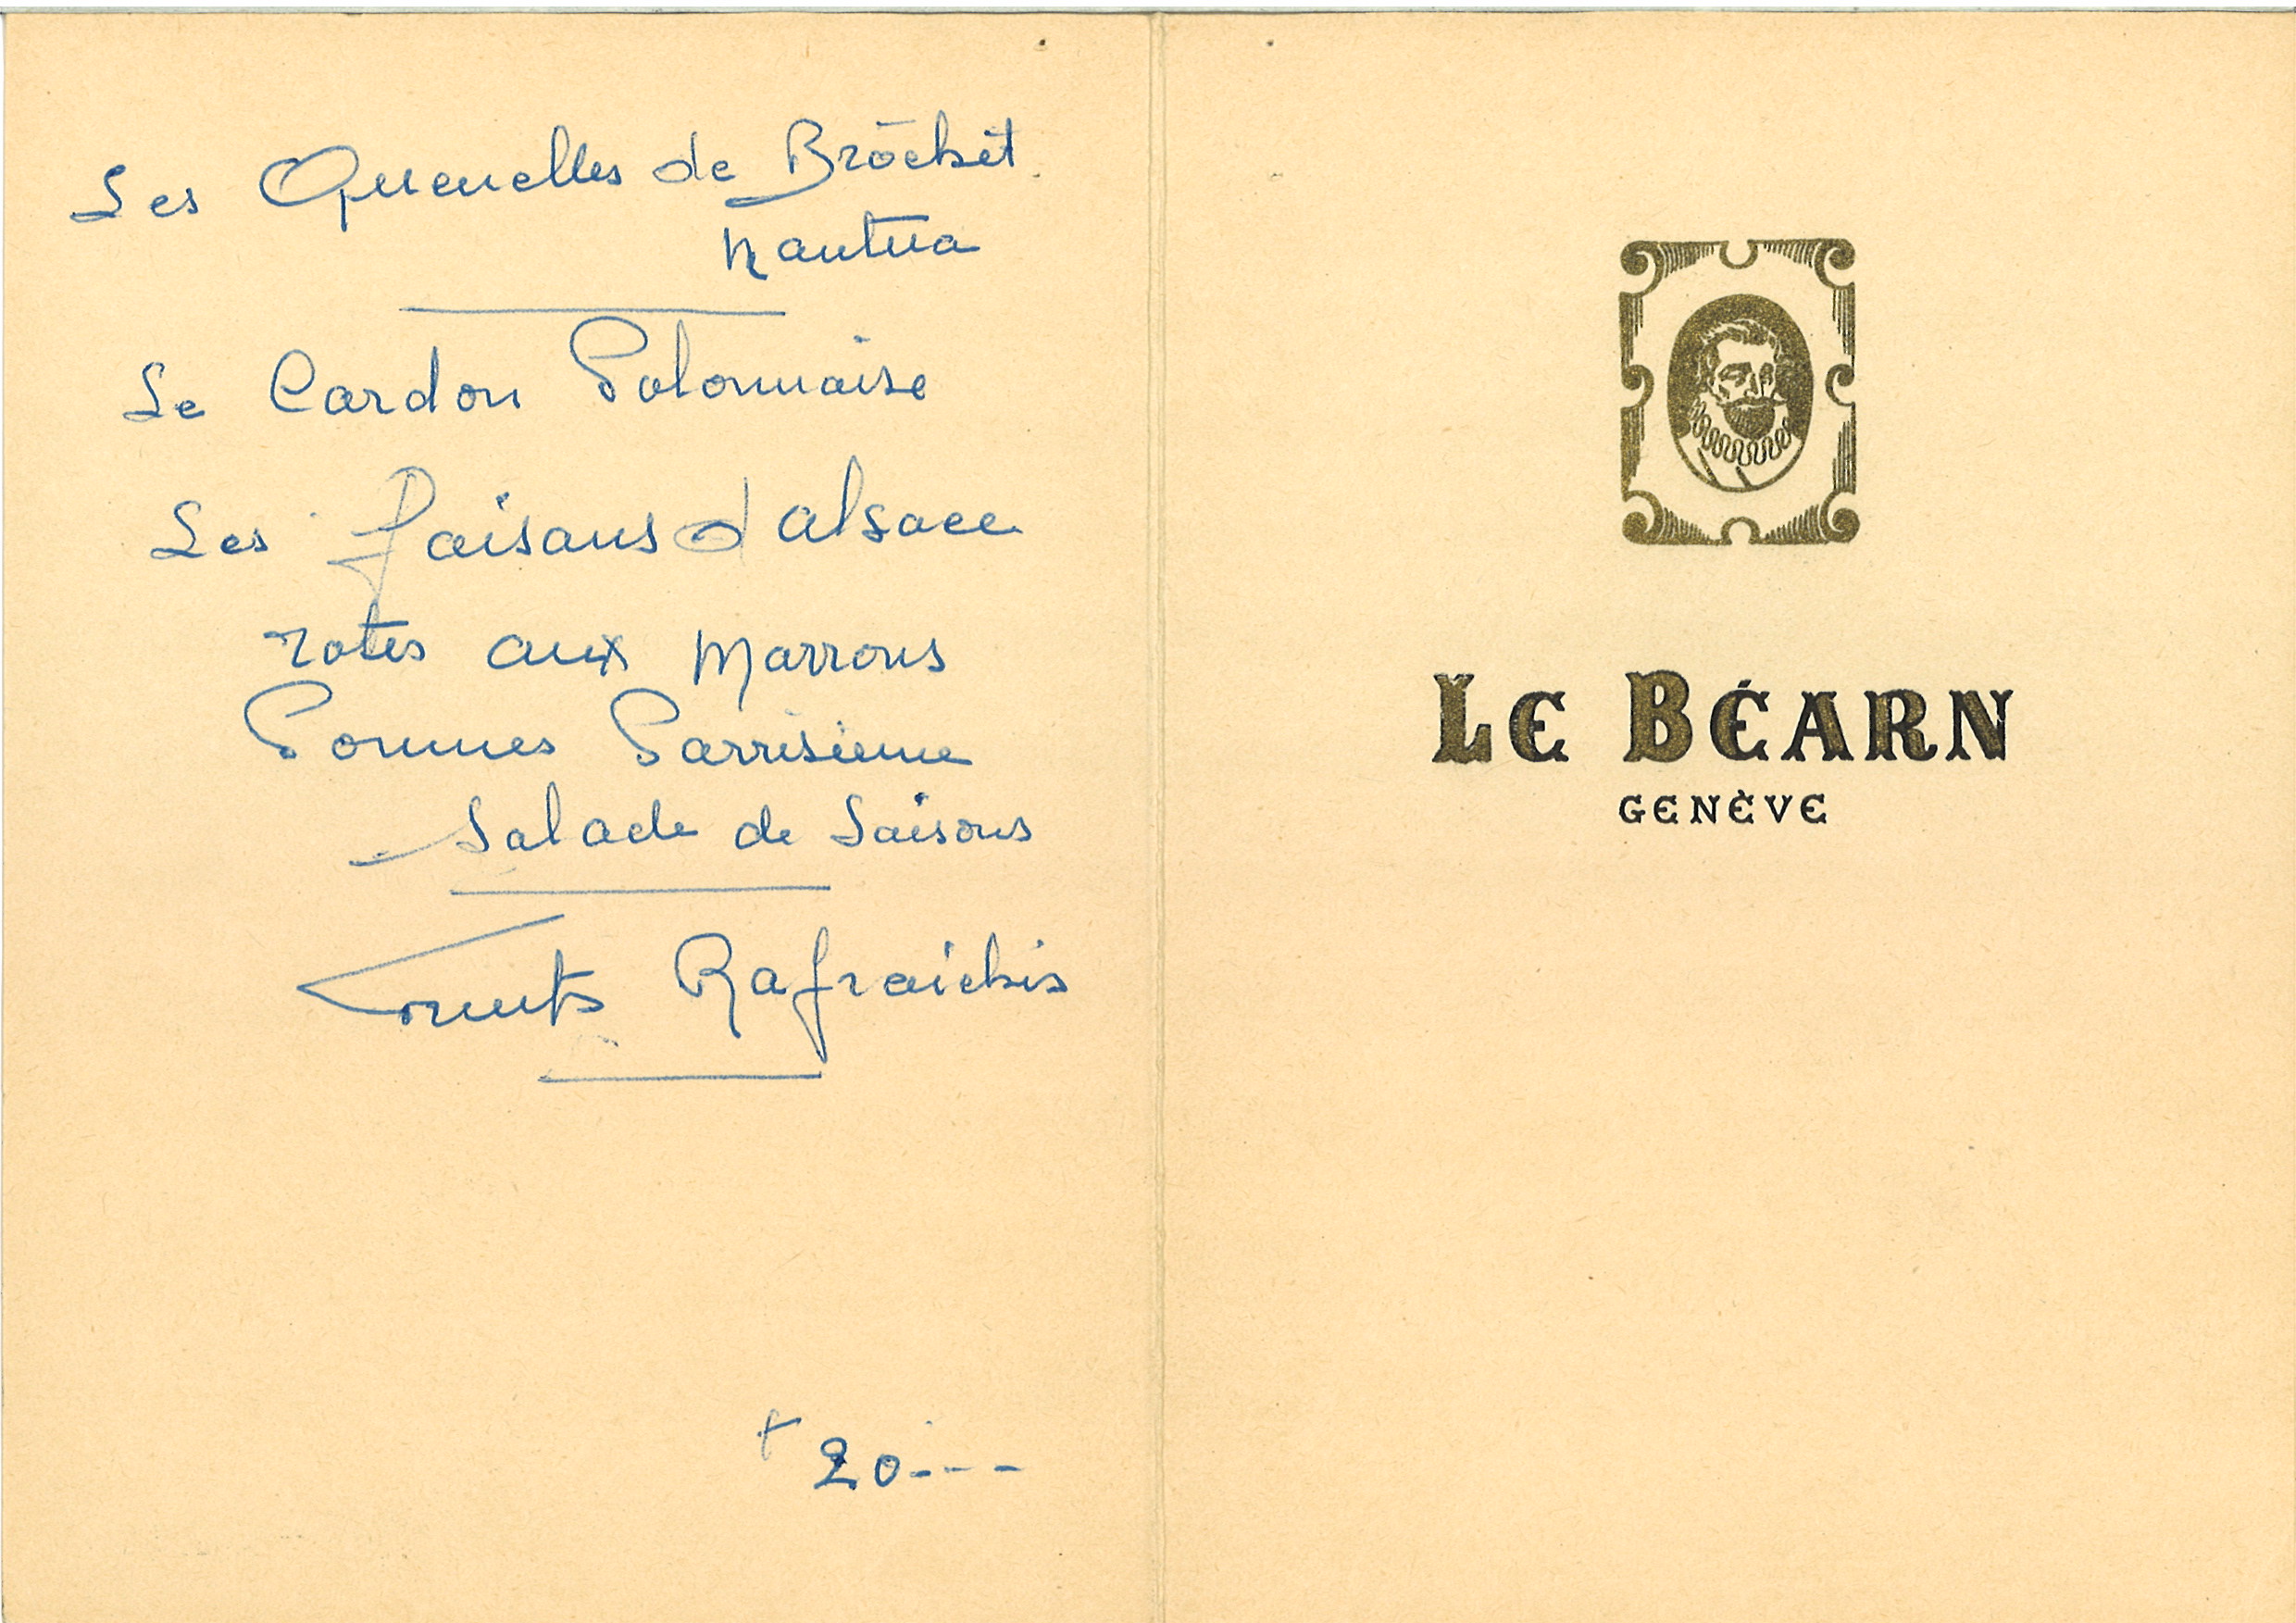 Les Quenelles de Brochet
Nantua
Le Cardon Polonnaise
Les Faisans d alsace
rotes aux Marrons
Pommes Parrisienne
Salade de Saisons
Rafraichis
20.---
LE BÉARN
GENÈVE